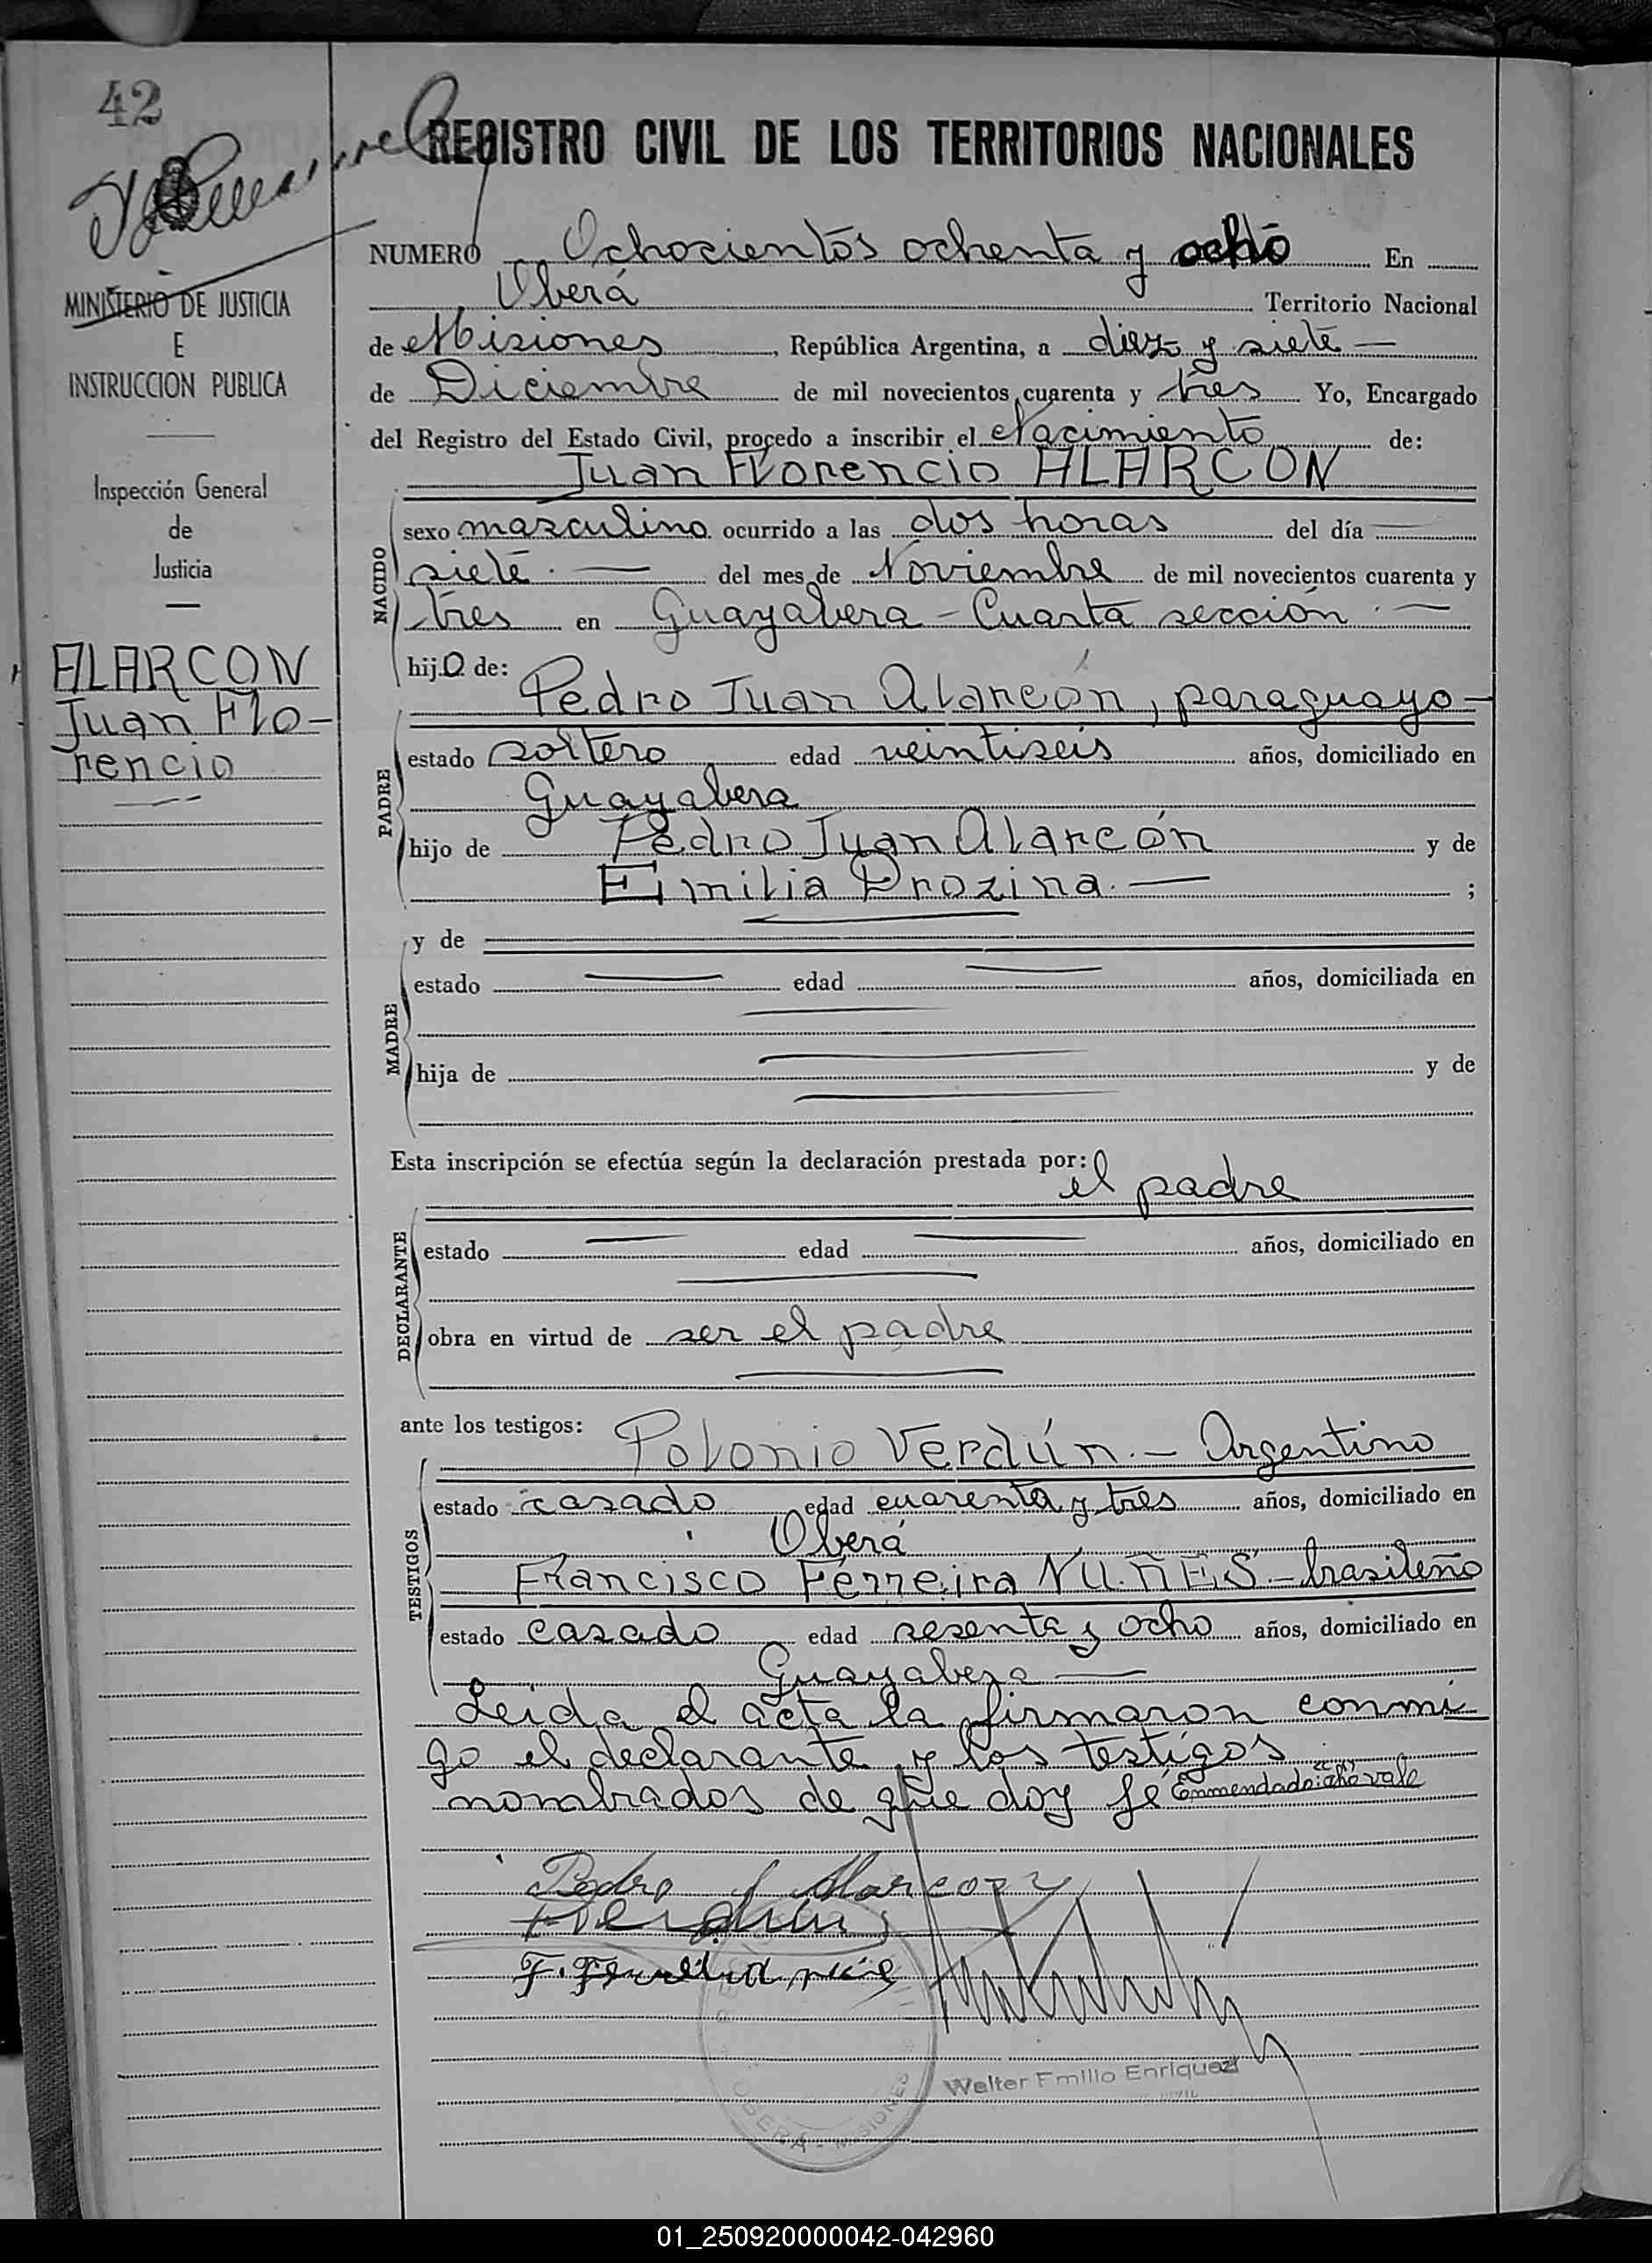 42
REGISTRO CIVIL DE LOS TERRITORIOS NACIONALES
NUMERO Ochocientos ochenta y ocho En
Oberá Territorio Nacional
de Misiones, República Argentina, a diez y siete —
de Diciembre de mil novecientos cuarenta y tres Yo, Encargado
del Registro del Estado Civil, procedo a inscribir el Nacimiento de:
Juan Florencio ALARCON
MINISTERIO DE JUSTICIA
E
INSTRUCCION PUBLICA
Inspección General
de
Justicia
ALARCON
Juan Flo-
rencio
NACIDO
sexo masculino ocurrido a las dos horas del día —
siete. — del mes de Noviembre de mil novecientos cuarenta y
tres en Guayabera - Cuarta sección. —
hijo de:
Pedro Juan Alarcón, paraguayo -
PADRE
estado soltero edad veintiseis años, domiciliado en
Guayabera
hijo de Pedro Juan Alarcón y de
Emilia Prozina. — ;
MADRE
y de
estado — edad — años, domiciliada en
hija de — y de
Esta inscripción se efectúa según la declaración prestada por:
el padre
DECLARANTE
estado — edad — años, domiciliado en
obra en virtud de ser el padre
ante los testigos:
Polonio Verdún. - Argentino
TESTIGOS
estado casado edad cuarenta y tres años, domiciliado en
Oberá
Francisco Ferreira NUÑES - brasileño
estado casado edad sesenta y ocho años, domiciliado en
Guayabera —
Leida el acta la firmaron conmi
go el declarante y los testigos
nombrados de que doy fé Enmendado: "cho" vale
Pedro J Alarcon
Verdún
F. Ferreira
OBERA - MISIONES
Walter Emilio Enriquez
01_250920000042-042960